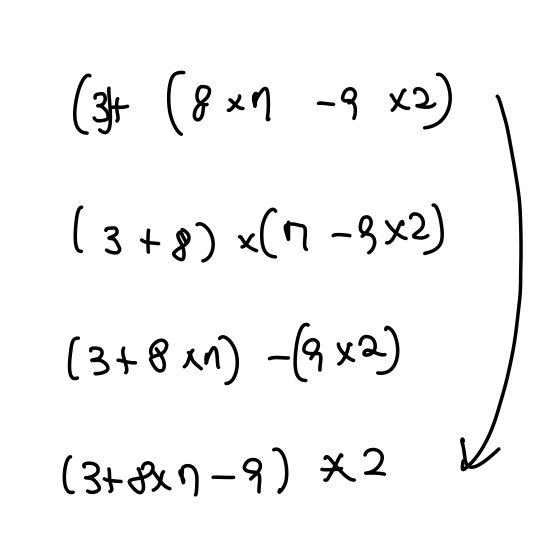 (3)+ (8×7 -9 ×2)
(3+8)×(7-9×2)
(3+8×7) -(9×2)
(3+8×7-9) ×2